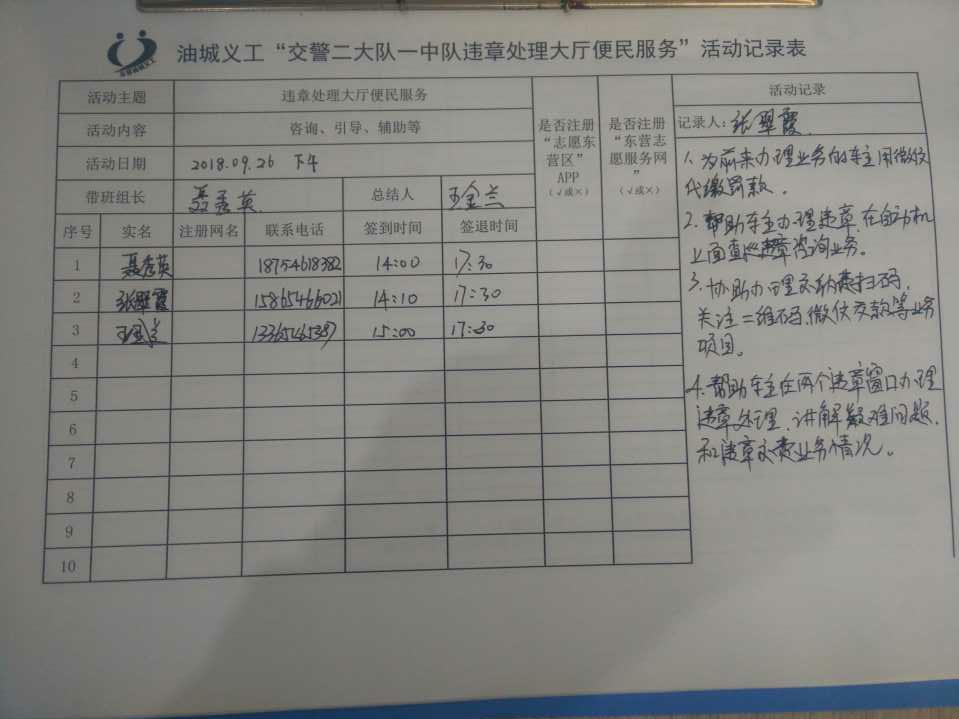 油城义工“交警二大队一中队违章处理大厅便民服务”活动记录表
活动主题 违章处理大厅便民服务
活动内容 咨询、引导、辅助等
活动日期 2018.09.26 下午
带班组长 聂秀英 总结人 王金兰
序号 实名 注册网名 联系电话 签到时间 签退时间
是否注册
“志愿东
营区”
APP
(√或×)
是否注册
“东营志
愿服务网
”
(√或×)
1 聂秀英 18754618382 14:00 17:30
2 张翠霞 15865466021 14:10 17:30
3 王金兰 15:00 17:30
4
5
6
7
8
9
10
活动记录
记录人: 张翠霞
1、为前来办理业务的车主用微信
代缴罚款。
2、帮助车主办理违章,在自动机
上面查违章咨询业务。
3、协助办理交纳费扫码,
关注二维码,微信交款等业务
项目。
4、帮助车主在两个违章窗口办理
违章处理,讲解疑难问题,
和违章交费业务情况。